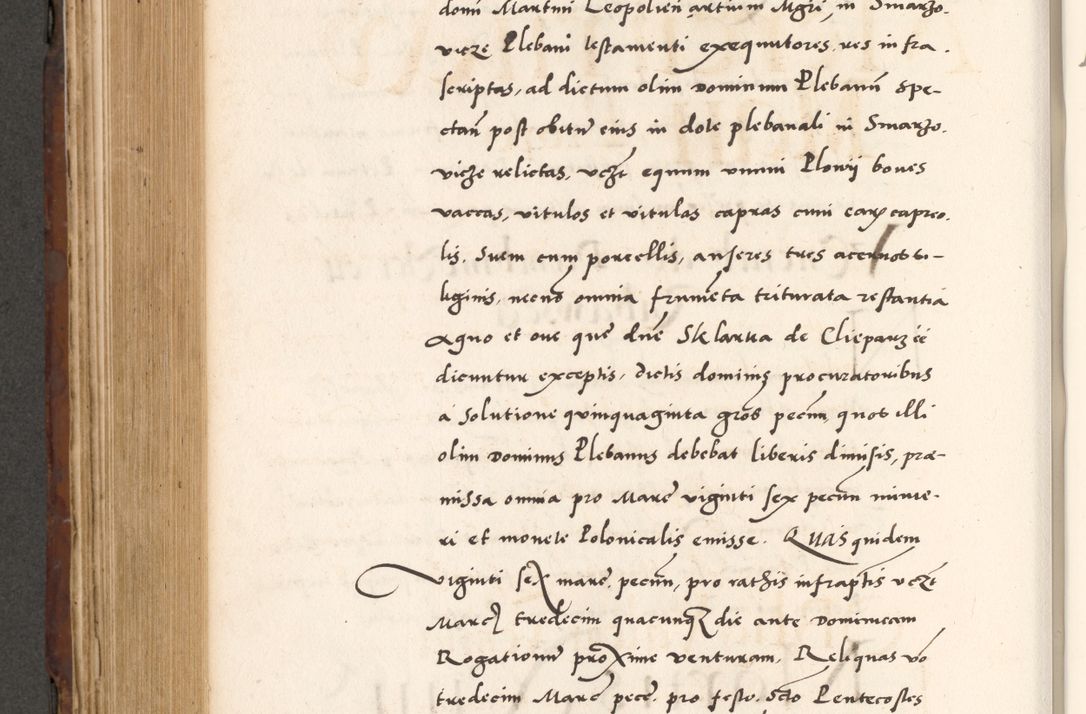 domi Martini Leopolien artium Mgri in Smarzo.
vicze Plebani testamenti exequutores, res in fra.
scriptas, ad dictum olim Dominum Plebanum spe-
ctan post obitum eius in dote plebanali in Smarzo.
vicze relictas, vczt equum unum Plowij boues
vaccas, vitulos et vitulas capras cum earum capreo.
lis, Suem cum porcellis, anseres tres aceruos
liginis, necno omnia frumeta triturata restantia
Aequo et oue que dne Sklarka de Clieparz
dicuntur exceptis, Dictis dominis procuratoribus
a Solutione quinquaginta gros pecun, quos illi
olim Dominus Plebanus debebat liberis dimisis, præ-
missa omnia pro Marc viginti sex pecun nume-
ri et monete Polonicalis emisse. Quas quidem
viginti sex marc. pecun, pro rathis infraptis vczt
Marc tredecim quacunque die ante Dominicam
Rogationum proxime venturam. Reliquas vo
tredecim Marc pecc. pro festo. Scto Pentecostes